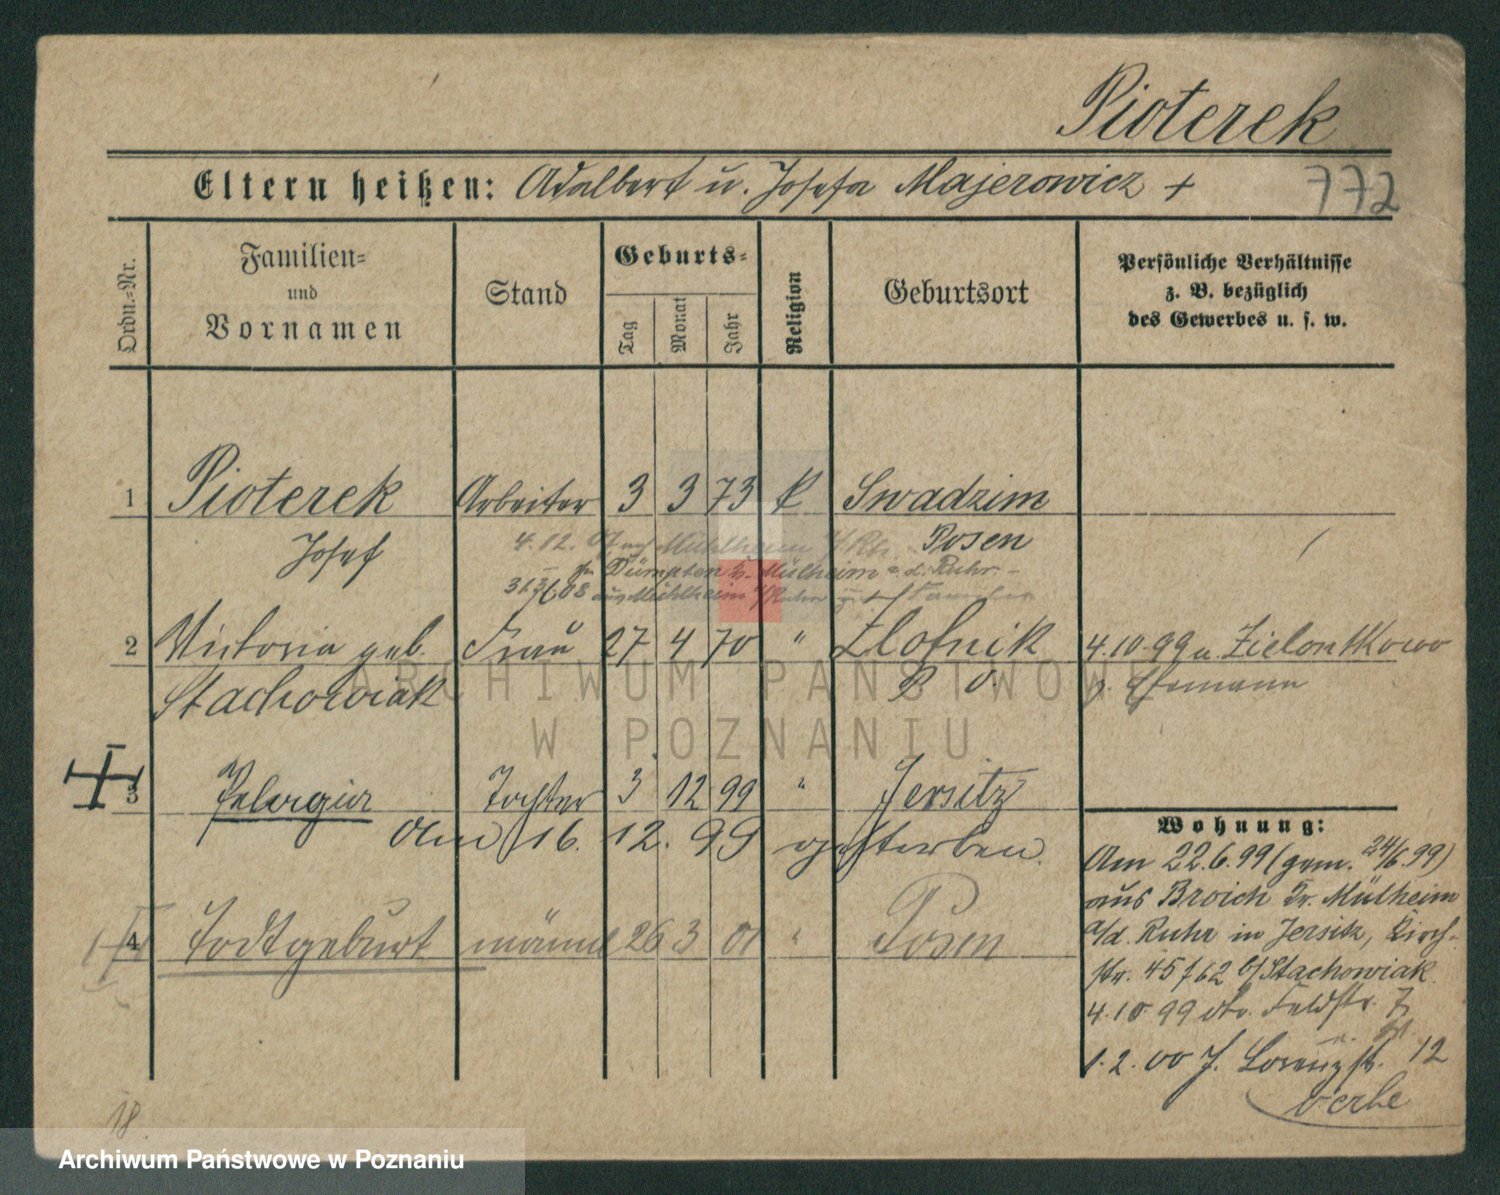 Pioterek
Eltern heißen: Adalbert u. Josefa Majerowicz +
772
Ordn.-Nr.
Familien-
und
Vornamen
Stand
Geburts-
Tag
Monat
Jahr
Religion
Geburtsort
Persönliche Verhältnisse
z. B. bezüglich
des Gewerbes u. s. w.
1 Pioterek Arbeiter 3 3 73 k Swadzim
Josef Posen
4.12. Mühlheim
Dümpten b. Mülheim a. d. Ruhr
aus Mühlheim a/Ruhr
2 Victoria geb. Frau 27 4 70 " Zlotnik 4.10.99 n. Zielontkowo
Stachowiak P. O. z. Ehemann
3 Pelagia Tochter 3 12 99 " Jersitz
Am 16. 12. 99 gestorben.
4 Todtgeburt männl 26 3 01 " Posen
Wohnung:
Am 22.6.99 (gem. 24/6.99)
aus Broich Kr. Mülheim
a/d. Ruhr in Jersitz, Kirch-
str. 45/62 b/Stachowiak
4.10.99 do. Feldstr. 7
1.2.00 J. Lorenzstr. 12
18.
ARCHIWUM PAŃSTWOWE
W POZNANIU
Archiwum Państwowe w Poznaniu